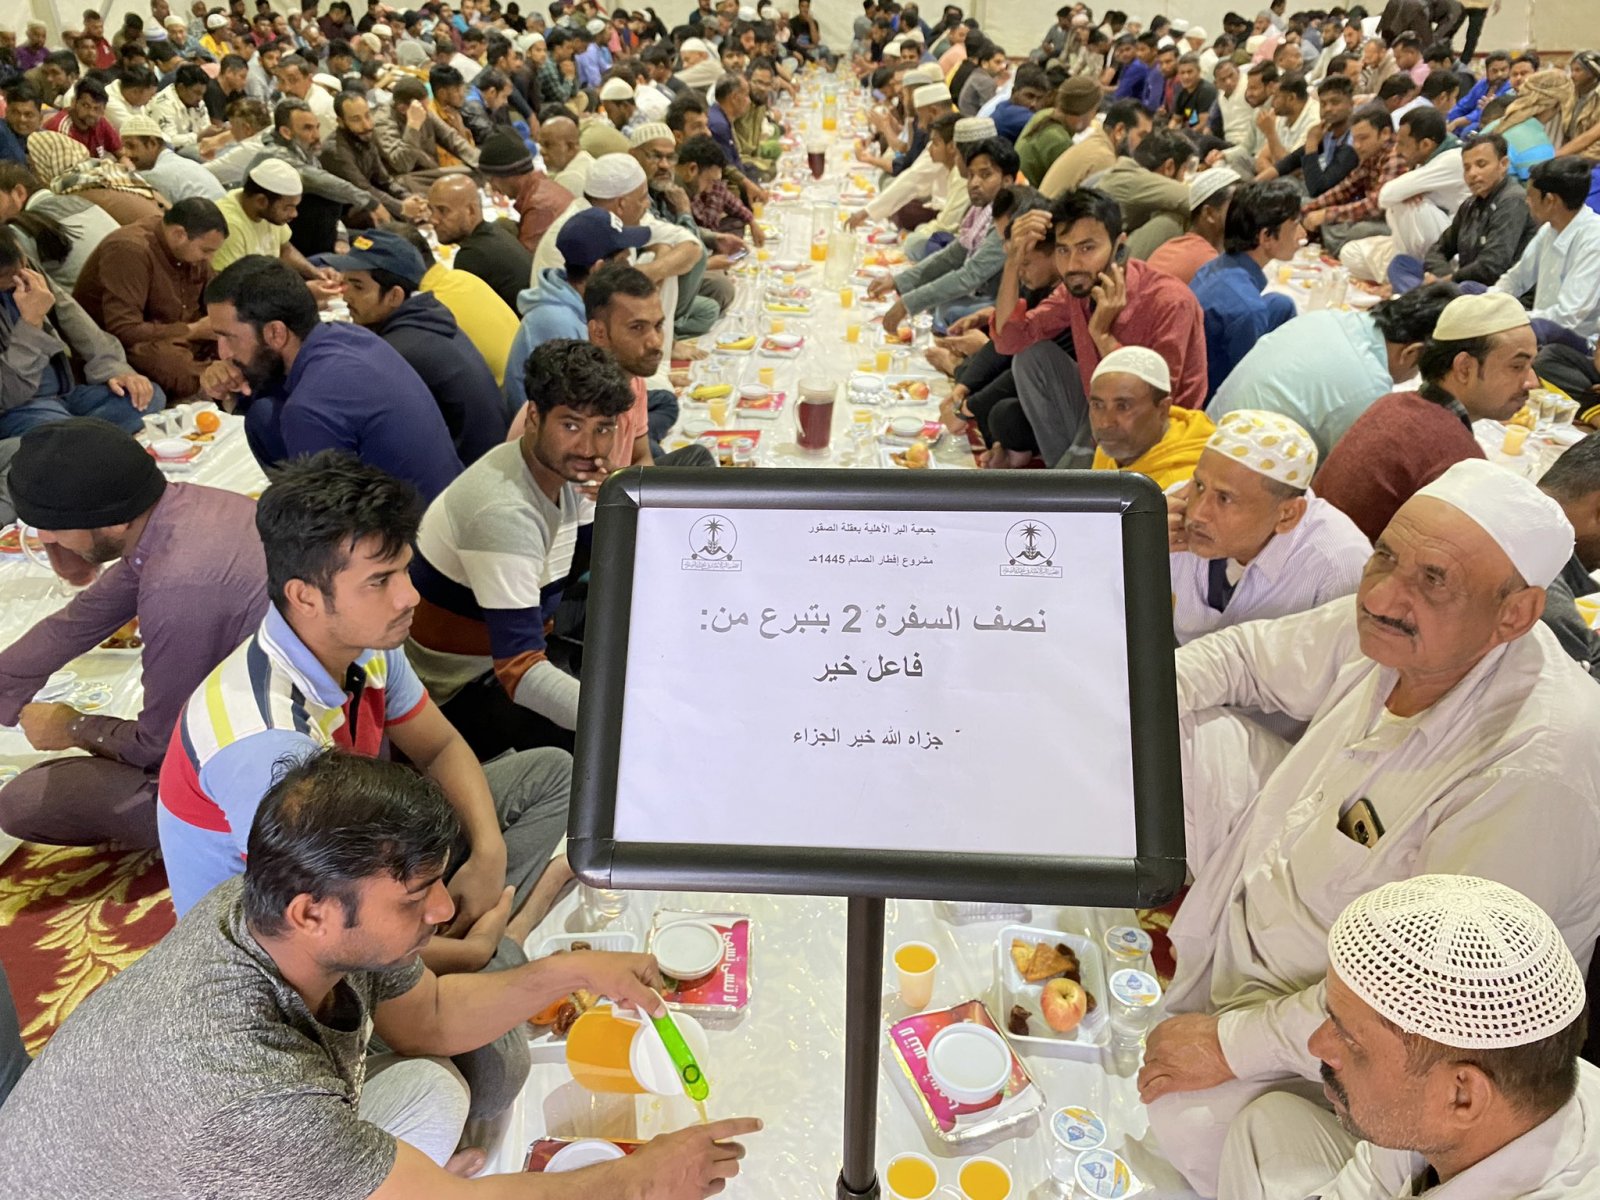 جمعية البر الأهلية بعقلة الصقور
مشروع إفطار الصائم 1445هـ
نصف السفرة 2 بتبرع من:
فاعل خير
جزاه الله خير الجزاء
لا تنسى